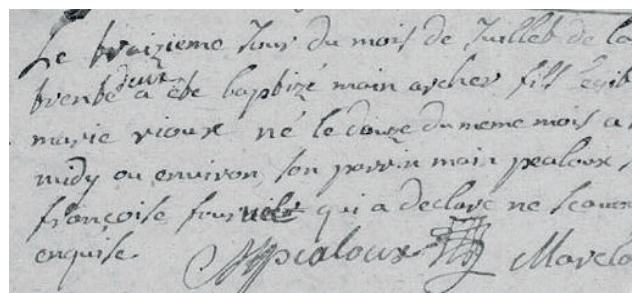 Le troizieme Jour du mois de Juillet de la
trente deux a ete baptizé main archer fils legit
marie rioux né le douze du meme mois a
midy ou environ, son parrin main pealoux
françoise fournele qui a declare ne scavoir
enquise. pealoux Marcela